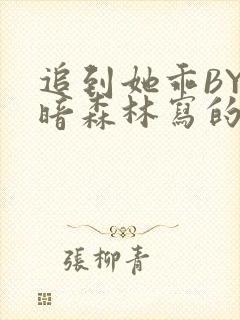 追到她乖BY
暗森林寫的
張柳青